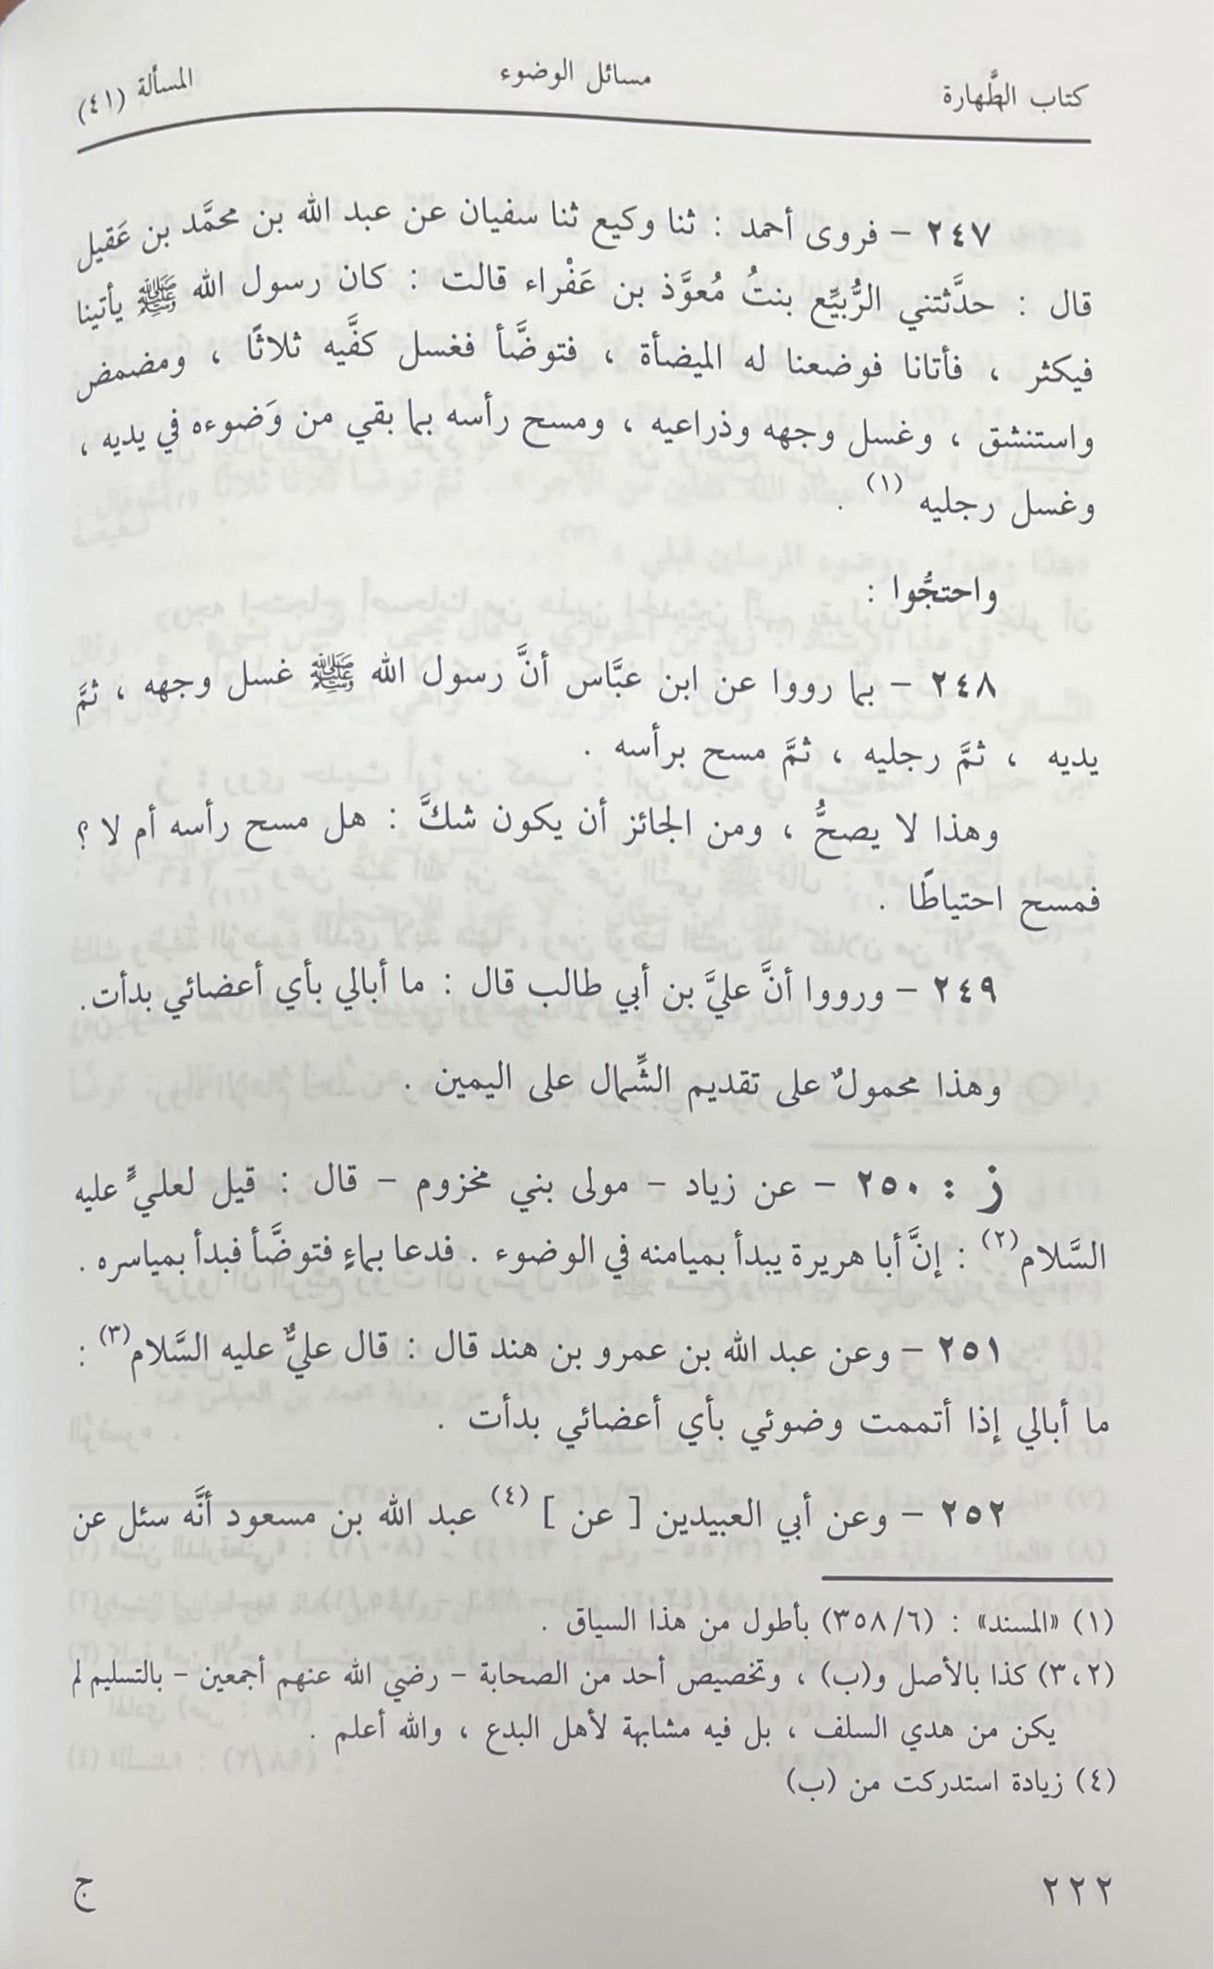 كتاب الطَّهارة مسائل الوضوء المسألة (٤١)
٢٤٧ – فروى أحمد : ثنا وكيع ثنا سفيان عن عبد الله بن محمَّد بن عَقيل
قال : حدَّثتني الرُّبيِّع بنتُ مُعوَّذ بن عَفْراء قالت : كان رسول الله ﷺ يأتينا
فيكثر ، فأتانا فوضعنا له الميضأة ، فتوضَّأ فغسل كفَّيه ثلاثًا ، ومضمض
واستنشق ، وغسل وجهه وذراعيه ، ومسح رأسه بما بقي من وَضوءه في يديه ،
وغسل رجليه (١) .
واحتجُّوا :
٢٤٨ – بما رووا عن ابن عبَّاس أنَّ رسول الله ﷺ غسل وجهه ، ثمَّ
يديه ، ثمَّ رجليه ، ثمَّ مسح برأسه .
وهذا لا يصحُّ ، ومن الجائز أن يكون شكَّ : هل مسح رأسه أم لا ؟
فمسح احتياطًا .
٢٤٩ – ورووا أنَّ عليَّ بن أبي طالب قال : ما أبالي بأي أعضائي بدأت.
وهذا محمولٌ على تقديم الشِّمال على اليمين .
ز : ٢٥٠ – عن زياد – مولى بني مخزوم – قال : قيل لعليٍّ عليه
السَّلام(٢) : إنَّ أبا هريرة يبدأ بميامنه في الوضوء . فدعا بماءٍ فتوضَّأ فبدأ بمياسره .
٢٥١ – وعن عبد الله بن عمرو بن هند قال : قال عليٌّ عليه السَّلام(٣) :
ما أبالي إذا أتممت وضوئي بأي أعضائي بدأت .
٢٥٢ – وعن أبي العبيدين [ عن ] (٤) عبد الله بن مسعود أنَّه سئل عن
(١) «المسند» : (٣٥٨/٦) بأطول من هذا السياق .
(٣،٢) كذا بالأصل و(ب) ، وتخصيص أحد من الصحابة – رضي الله عنهم أجمعين – بالتسليم لم
يكن من هدي السلف ، بل فيه مشابهة لأهل البدع ، والله أعلم .
(٤) زيادة استدركت من (ب)
٢٢٢ ج